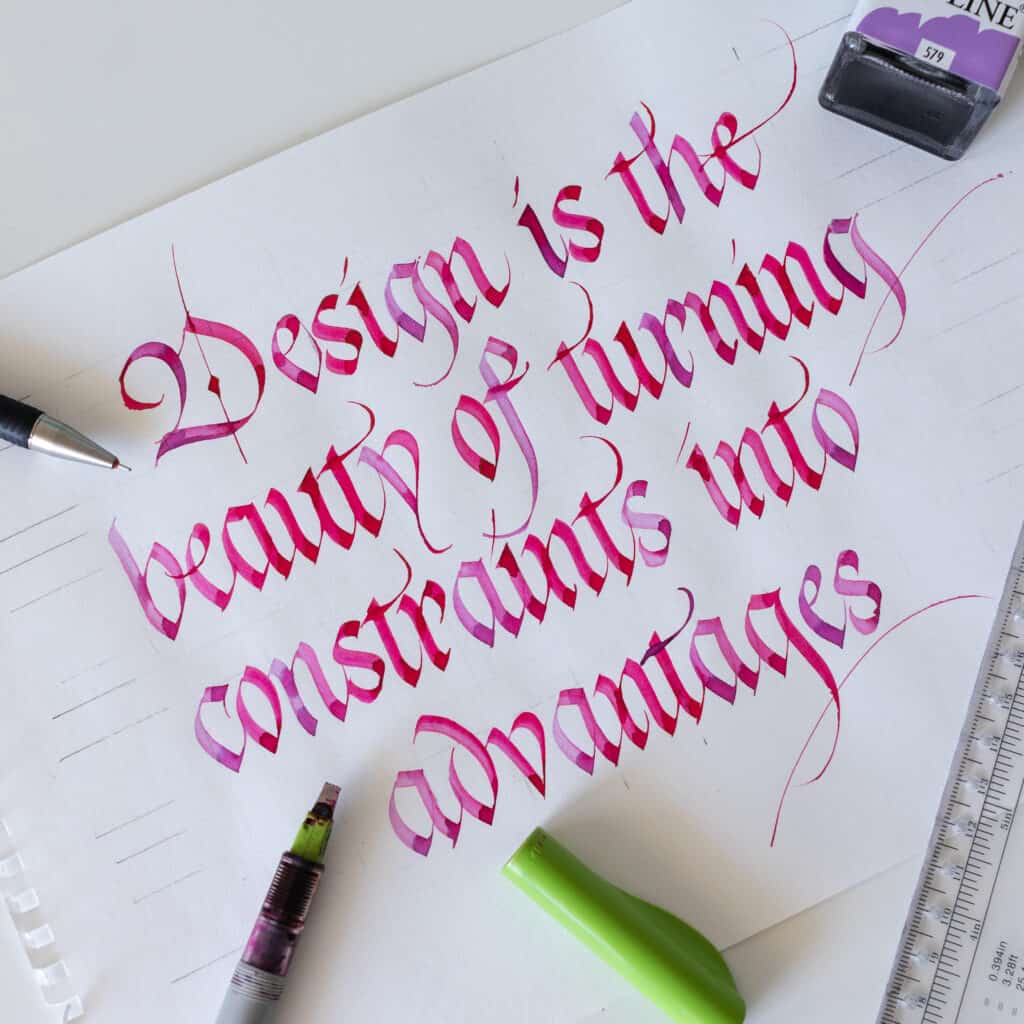 Design is the
beauty of turning
constraints into
advantages
LINE
579
0.394in
3.28ft